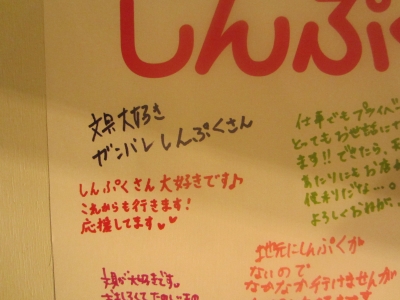 しんぷく
文具大好き
ガンバレしんぷくさん
しんぷくさん大好きです♪
これからも行きます!
応援してます♥♥
仕事でもプライベ
とってもお世話に
ます!!できたら、
あたりにもお店が
便利だな…。
よろしくお願い
地元にしんぷくが
ないので
なかなか行けませんが
文具が大好きです。